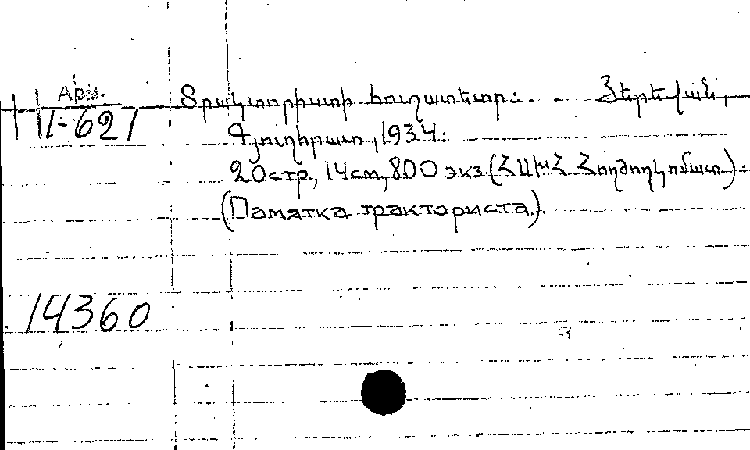 Арм.
II-621
Տրակտորիստի հուշատետր: Յերեվան,
Գյուղհրատ, 1934:
20 стр., 14 см, 800 экз. (ՀԱԽՀ Հողժողկոմատ):
(Памятка тракториста.)
14360